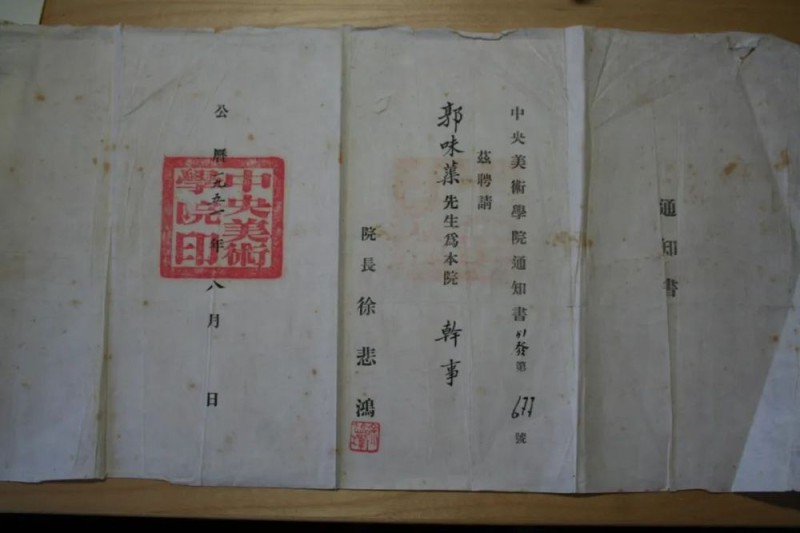 通知書
中央美術學院通知書 51 第 677 號
茲聘請
郭味蕖先生爲本院 幹事
院長 徐悲鴻
公曆一九五一年八月 日
中央美術學院印